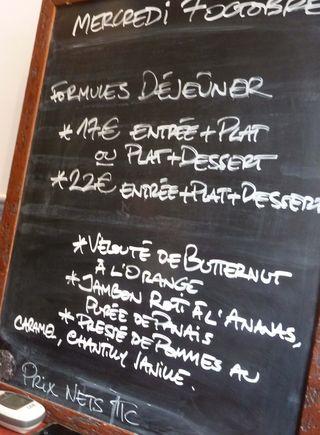 MERCREDI 7 OCTOBRE
FORMULES DÉJEÛNER
* 17€ ENTRÉE + PLAT
OU PLAT + DESSERT
* 22€ ENTRÉE + PLAT + DESSERT
* VELOUTÉ DE BUTTERNUT
À L'ORANGE
* JAMBON ROTI À L'ANANAS,
PURÉE DE PANAIS
* PRESSÉ DE POMMES AU
CARAMEL, CHANTILLY VANILLE.
PRIX NETS TTC